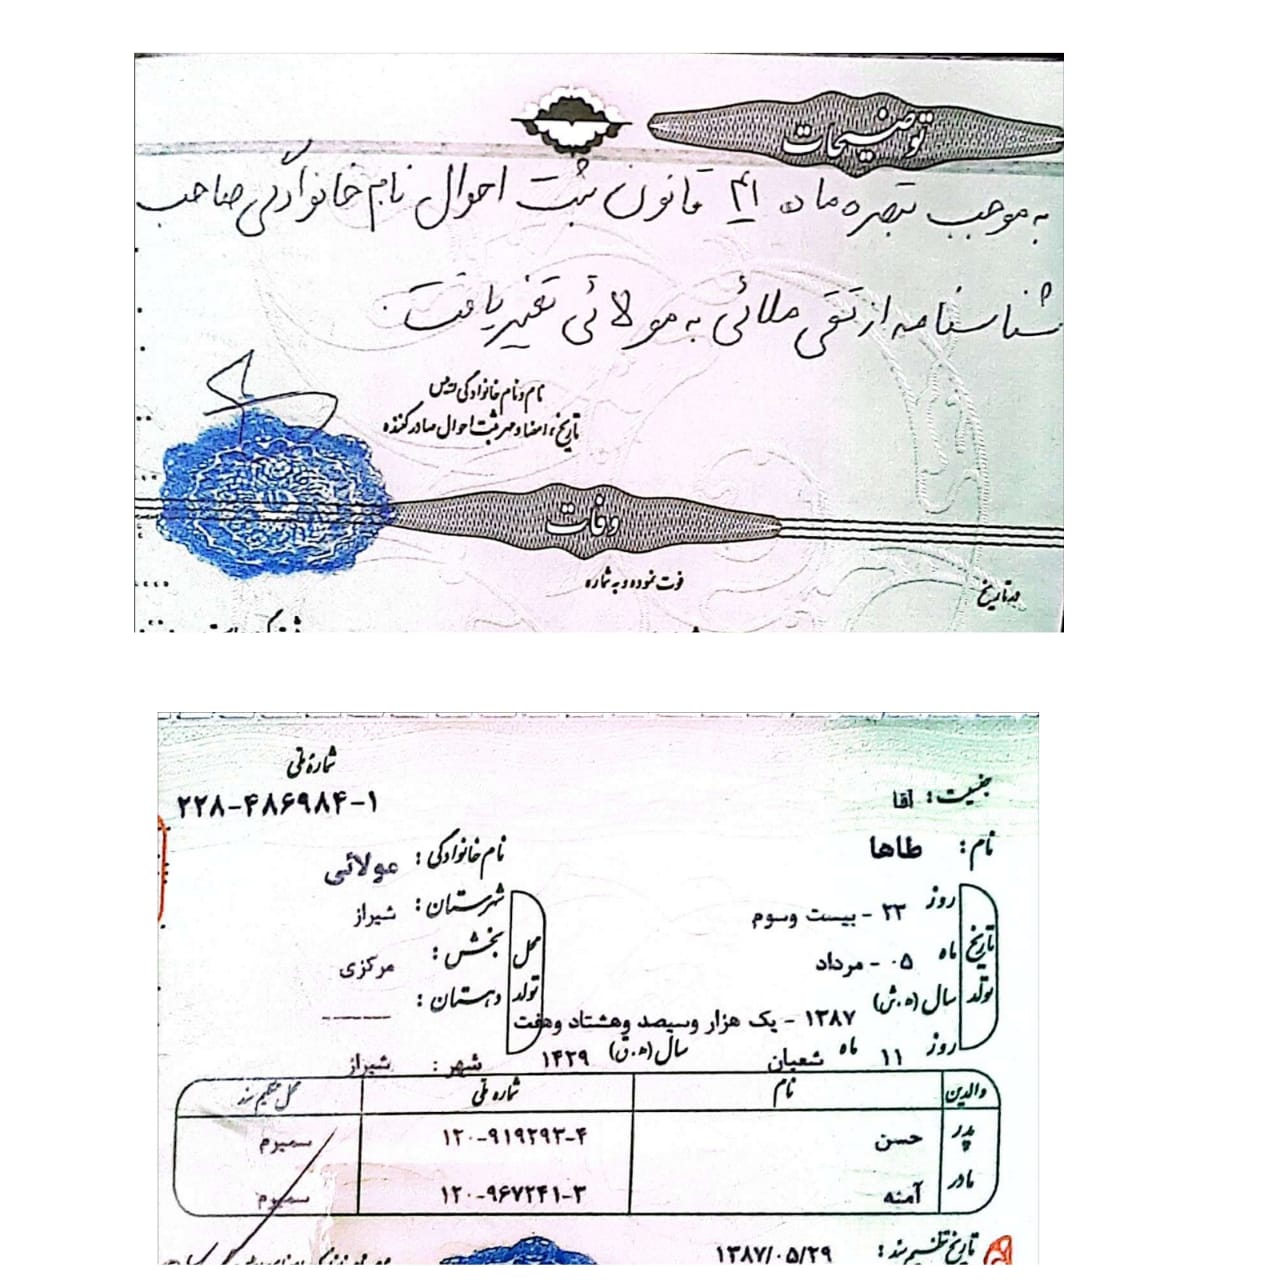 توضیحات
به موجب تبصره ماده ۴۱ قانون ثبت احوال نام خانوادگی صاحب
شناسنامه از تقی ملائی به مولائی تغییر یافت.
نام و نام خانوادگی رئیس
تاریخ، امضاء و مهر ثبت احوال صادرکننده
وفات
در تاریخ فوت نموده و به شماره
شماره ملی
۲۲۸-۴۸۶۹۸۴-۱
جنسیت: آقا
نام: طاها
نام خانوادگی: مولائی
تاریخ تولد
روز ۲۳ - بیست وسوم
ماه ۰۵ - مرداد
سال (ه.ش) ۱۳۸۷ - یک هزار وسیصد وهشتاد وهفت
روز ۱۱ ماه شعبان سال (ه.ق) ۱۴۲۹
محل تولد
شهرستان: شیراز
بخش: مرکزی
دهستان: ------
شهر: شیراز
والدین نام شماره ملی محل تنظیم سند
پدر حسن ۱۲۰-۹۱۹۲۹۳-۴ سمیرم
مادر آمنه ۱۲۰-۹۶۷۲۴۱-۳ سمیرم
تاریخ تنظیم سند: ۱۳۸۷/۰۵/۲۹